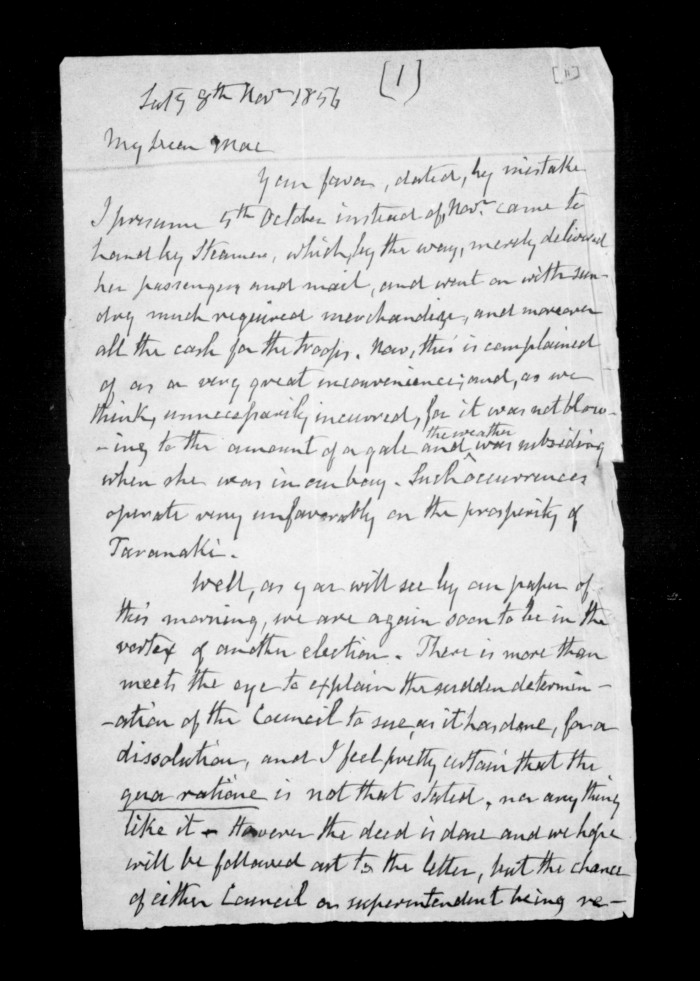 [1]
[ii]
Saty 8th Novr 1856
My dear Mac
Your favor, dated, by mistake
I presume 5th October instead of Novr. came to
hand by Steamer, which, by the way, merely delivered
her passengers and mail, and went on with sun-
dry much required merchandize, and moreover
all the cash for the troops. Now, this is complained
of as a very great inconvenience; and, as we
think, unnecessarily incurred, for it was not blow-
-ing to the amount of a gale and the weather was subsiding
when she was in our bay. Such occurrences
operate very unfavorably on the prosperity of
Taranaki.
Well, as you will see by our paper of
this morning, we are again soon to be in the
vortex of another election. There is more than
meets the eye to explain the sudden determin-
-ation of the Council to sue, as it has done, for a
dissolution, and I feel pretty certain that the
qua ratione is not that stated, nor any thing
like it. However the deed is done and we hope
will be followed out to the letter, but the chance
of either Council or superintendent being re-